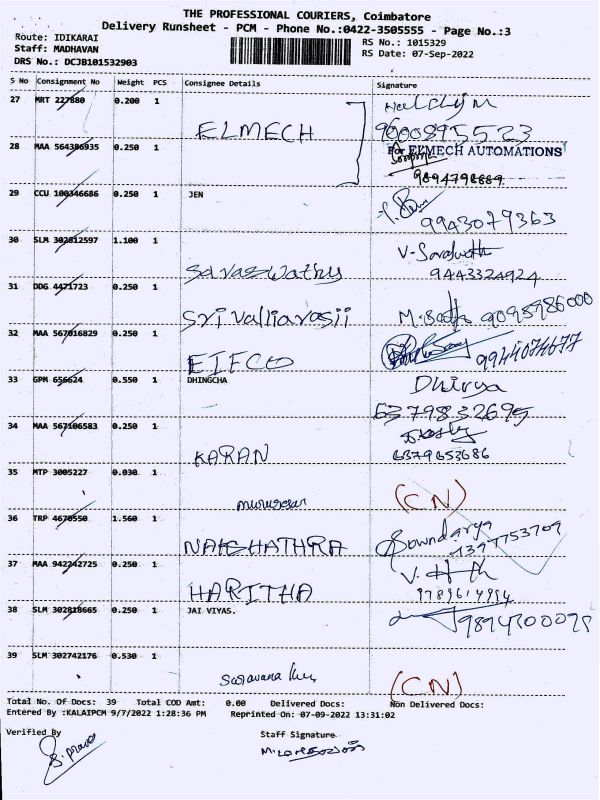 THE PROFESSIONAL COURIERS, Coimbatore
Delivery Runsheet - PCM - Phone No.:0422-3505555 - Page No.:3
Route: IDIKARAI
RS No.: 1015329
Staff: MADHAVAN
RS Date: 07-Sep-2022
DRS No.: DCJB101532903
S No Consignment No Weight PCS Consignee Details Signature
27 MRT 227880 0.200 1
ELMECH
9600895523
28 MAA 564306935 0.250 1
For ELMECH AUTOMATIONS
9894798689
29 CCU 100346686 0.250 1 JEN
9943079363
30 SLM 302812597 1.100 1
Saraswathy V-Saraswathi
9443324924
31 DDG 4471723 0.250 1
Sri Valliarasii 9095986000
32 MAA 567016829 0.250 1
EIFCO 9944074677
33 GPM 656624 0.550 1 DHINGCHA
Dhivya
6379832695
34 MAA 567106583 0.250 1
KARAN 6379653686
35 MTP 3005227 0.030 1
(CN)
36 TRP 4670550 1.560 1
NAKSHATHRA Sowndarya
1397753709
37 MAA 942242725 0.250 1
HARITHA 9789614994
38 SLM 302818665 0.250 1 JAI VIYAS.
39 SLM 302742176 0.530 1
(CN)
Total No. Of Docs: 39 Total COD Amt: 0.00 Delivered Docs: Non Delivered Docs:
Entered By :KALAIPCM 9/7/2022 1:28:36 PM Reprinted On: 07-09-2022 13:31:02
Verified By Staff Signature